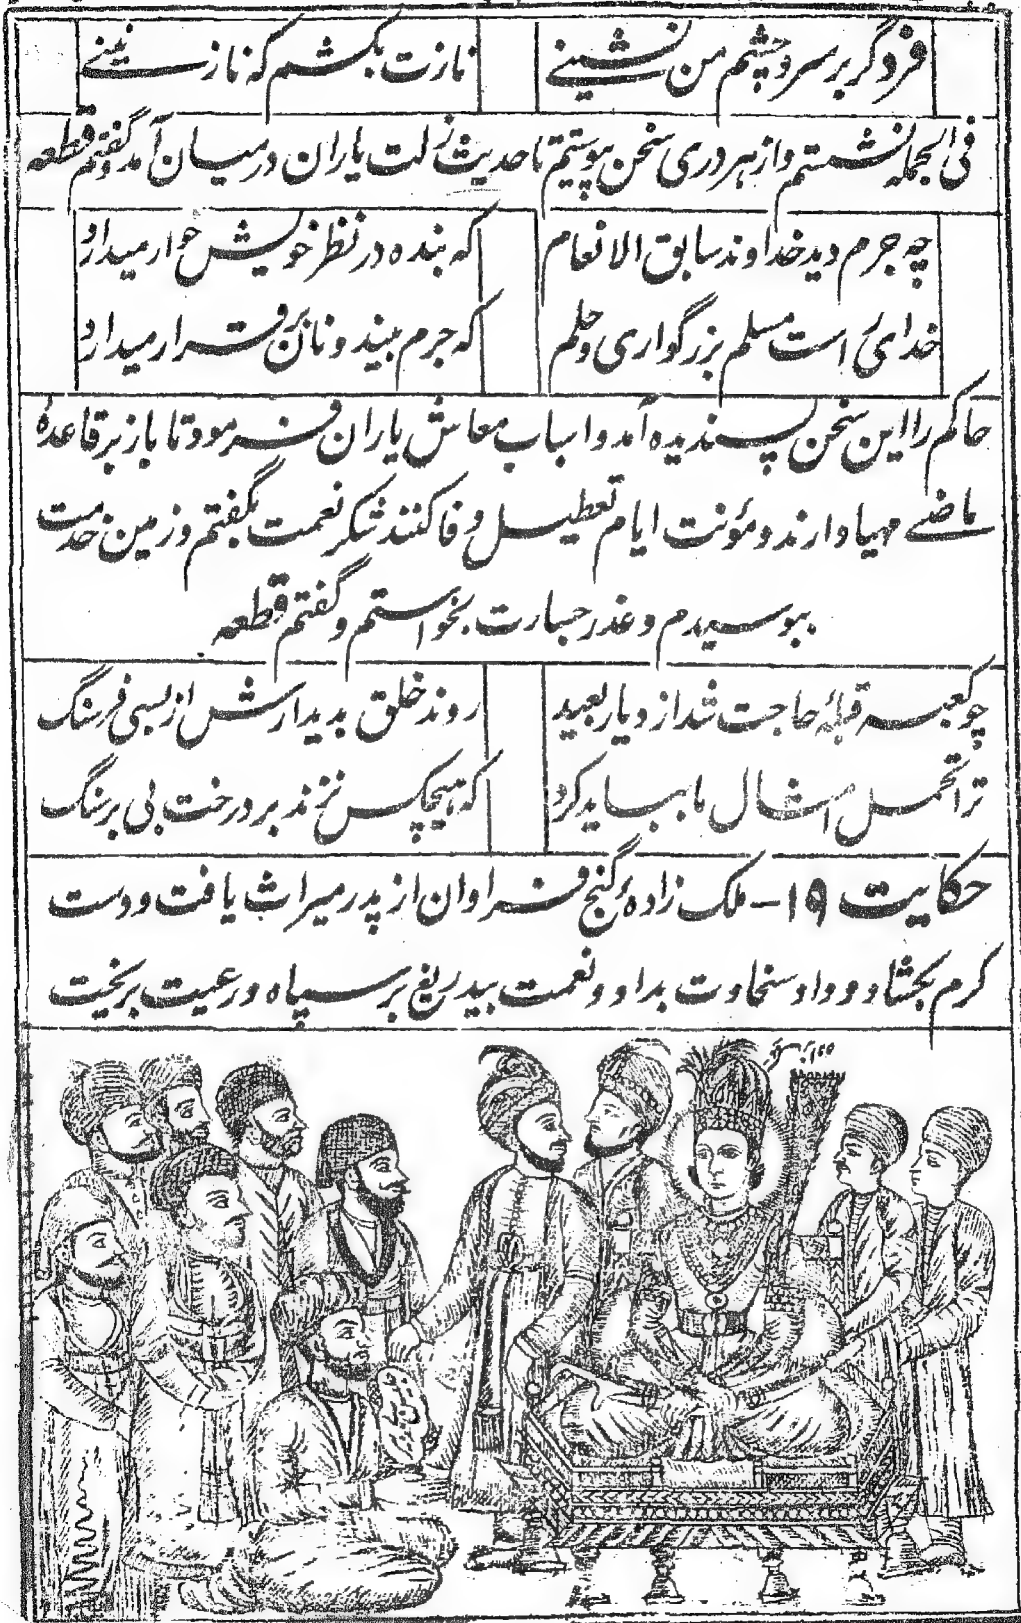 فرد گر بر سر و چشم من نشینے نازت بکشم که نازنینے
فی الجمله نشستم و از هر دری سخن پیوستیم تا حدیث زلت یاران در میان آمد و گفتم قطعه
چه جرم دید خداوند سابق الانعام که بنده در نظر خویش خوار میدارد
خدای است مسلم بزرگواری و حلم که جرم بیند و نان برقرار میدارد
حاکم را این سخن پسندیده آمد و اسباب معاش یاران فرمود تا باز بر قاعدهٔ
ماضے مهیا دارند و مؤنت ایام تعطیل وفا کنند شکر نعمت بگفتم و زمین خدمت
ببوسیدم و عذر جسارت بخواستم و گفتم قطعه
چو کعبه قبلهٔ حاجت شد از دیار بعید روند خلق بدیدارش از بسی فرسنگ
ترا تحمل امثال ما بباید کرد که هیچکس نزند بر درخت بی بر سنگ
حکایت ۱۹- ملک زادهٔ گنج فراوان از پدر میراث یافت و دست
کرم بخشاد و داد سخاوت بداد و نعمت بیدریغ بر سپاه و رعیت بریخت